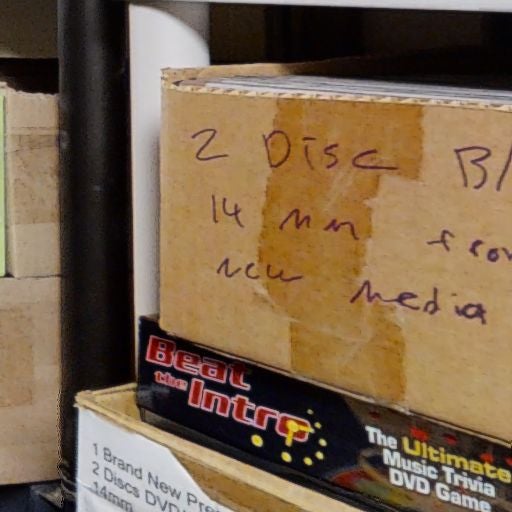 2 Disc B/
14 mm fro
new media
Beat
the Intro
The Ultimate
Music Trivia
DVD Game
1 Brand New Pre
2 Discs DVD
14mm